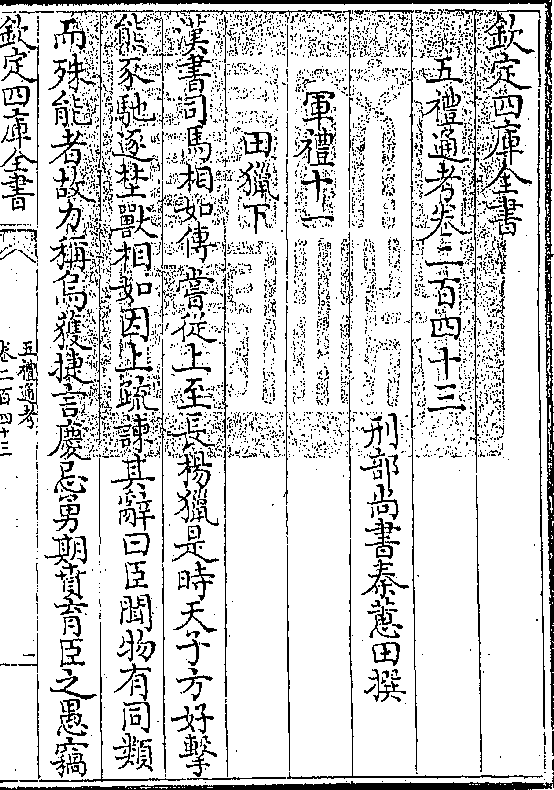 欽定四庫全書
五禮通考卷二百四十三
刑部尚書秦蕙田撰
軍禮十一
田獵下
漢書司馬相如傳嘗從上至長楊獵是時天子方好擊
熊豕馳逐埜獸相如因上疏諫其辭曰臣聞物有同類
而殊能者故力稱烏獲捷言慶忌勇期賁育臣之愚竊
欽定四庫全書
五禮通考
卷二百四十三
一